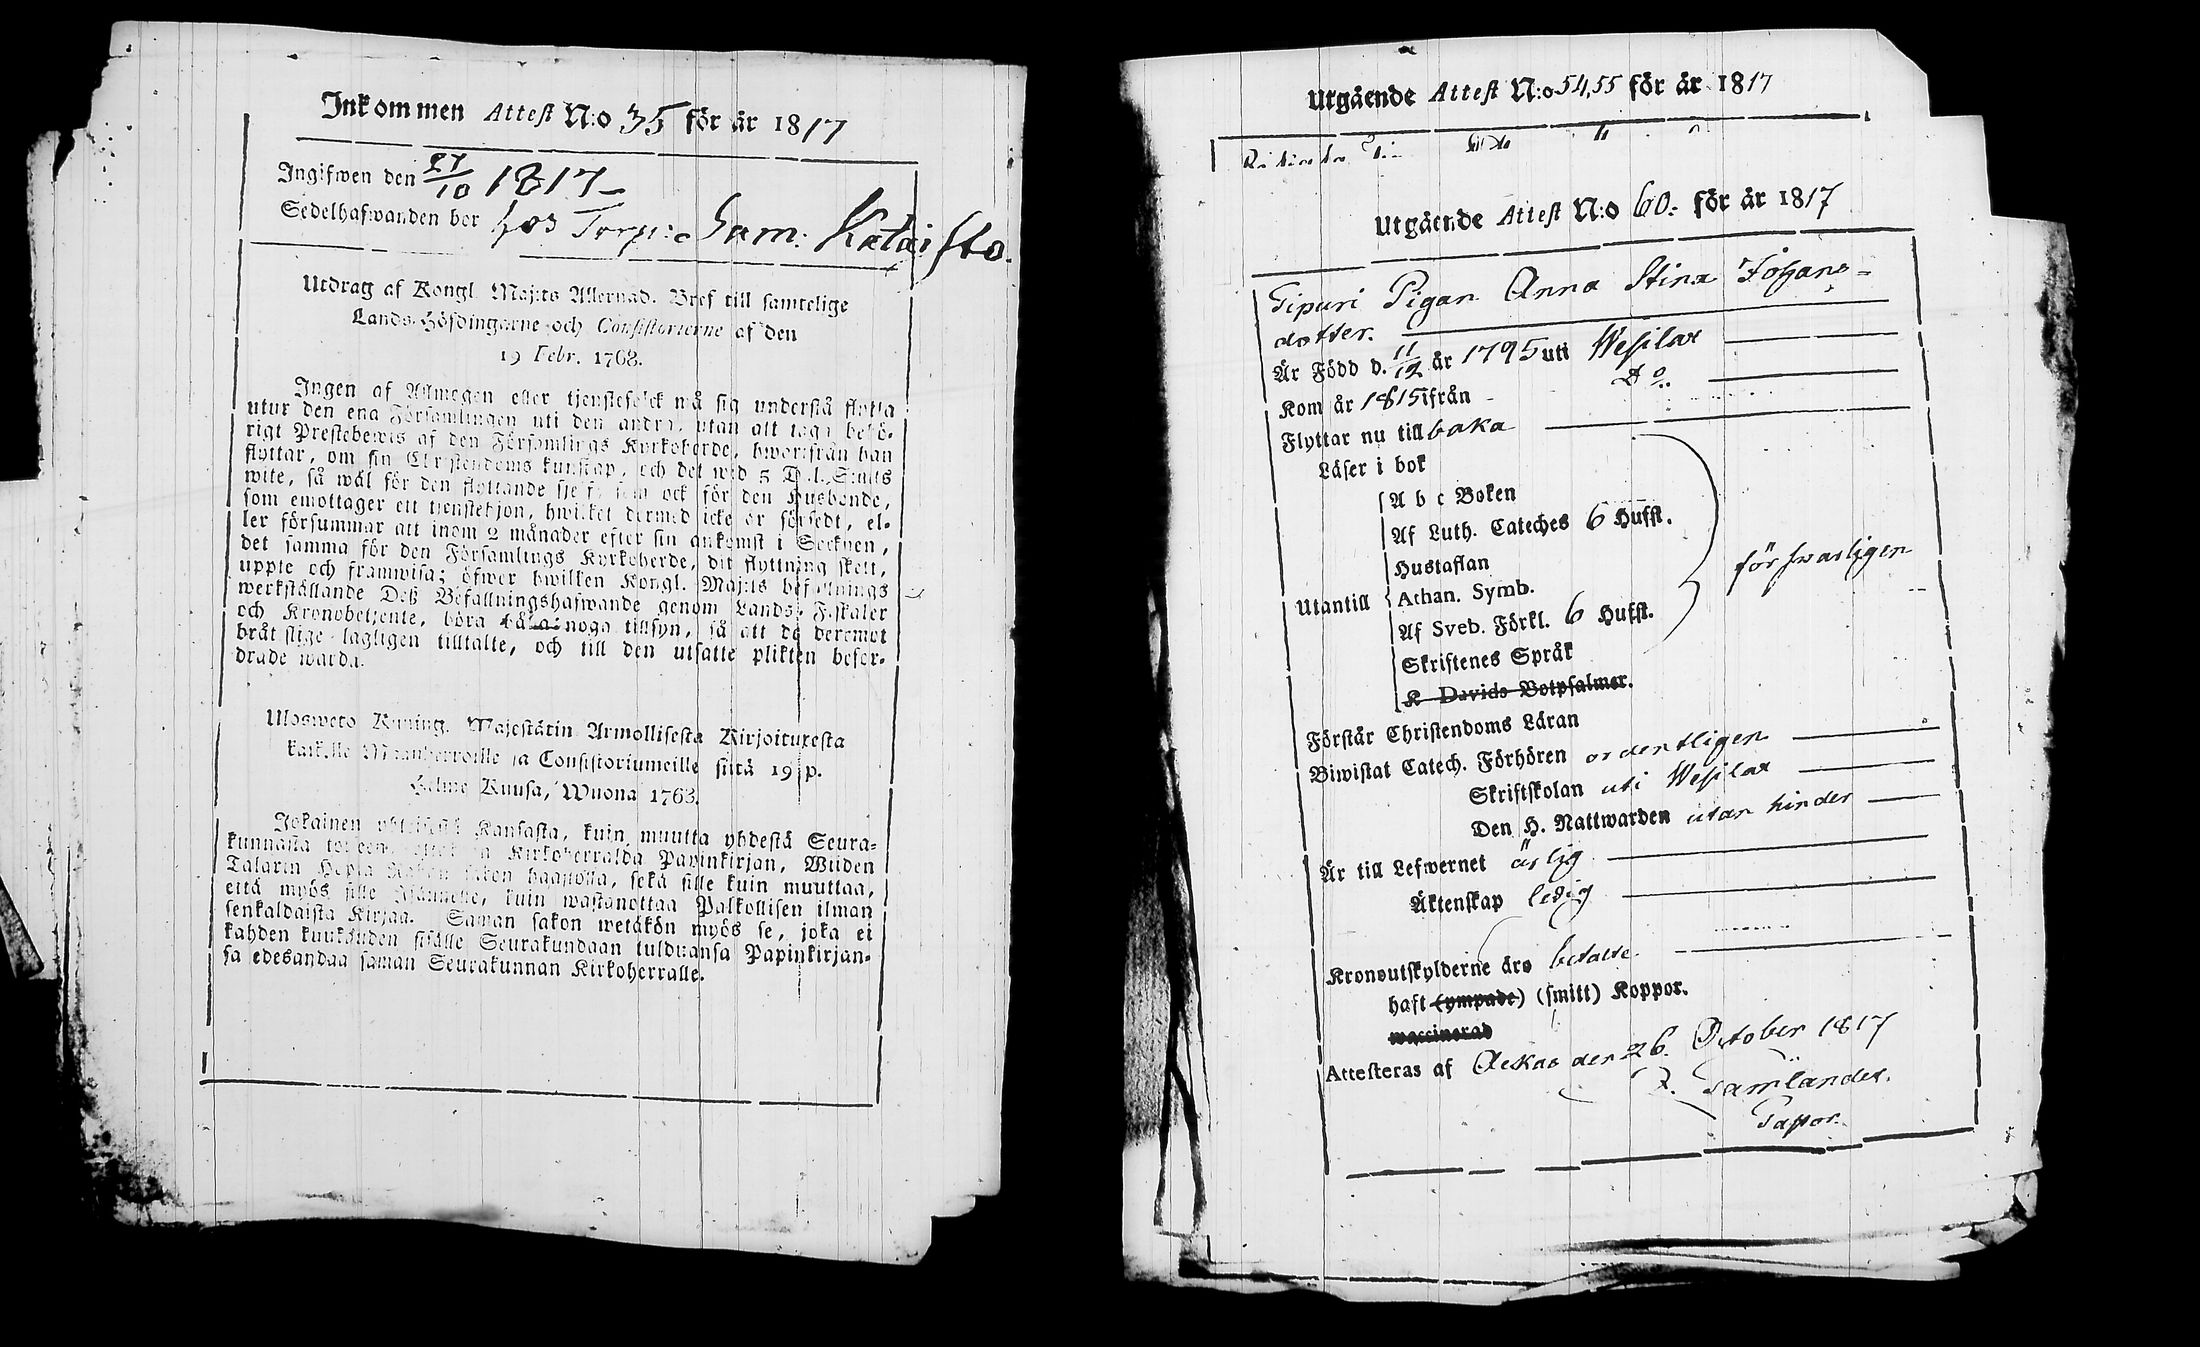 Inkommen Attest N:o 35 för år 1817
Ingifwen den 27/10 1817
Sedelhafwanden bor hos Torp: Sam: Kataisto.
Utdrag af Kongl. Maj:ts Allernåd. Bref till samtelige
Lands-Höfdingarne och Consistorierne af den
19 Febr. 1768.
Ingen af Allmogen eller tjenstefolck må sig understå flytta
utur den ena Församlingen uti den andra, utan att taga behö-
rigt Prestebewis af den Församlings Kyrkoherde, hworifrån han
flyttar, om sin Christendoms kunskap, och det wid 5 Dal. S:mts
wite, så wäl för den flyttande sjelf, som ock för den Husbonde,
som emottager ett tjenstehjon, hwilket dermed icke är försedt, el-
ler försummar att inom 2 månader efter sin ankomst i Socknen,
det samma för den Församlings Kyrkoherde, dit flyttning skett,
uppte och framwisa; öfwer hwilken Kongl. Maj:ts befallnings
werkställande Deß Befallningshafwande genom Lands-Fiskaler
och Kronobetjente, böra hålla noga tillsyn, så att de deremot
bråtslige lagligen tilltalte, och till den utsatte plikten befor-
drade warda.
Ulosweto Kuning. Majestätin Armollisesta Kirjoituxesta
kaikille Maanherroille ja Consistoriumeille siitä 19 p.
Helme Kuusa, Wuona 1763.
Jokainen yhteisestä Kansasta, kuin muutta yhdestä Seura-
kunnasta Kirkoherralda Papinkirjan, Wiiden
Talarin Hopia Rahan sakon haastolla, sekä sille kuin muuttaa,
että myös sille Isännelle, kuin wastanottaa Palkollisen ilman
senkaldaista Kirjaa. Saman sakon wetäkön myös se, joka ei
kahden kuukauden sisälle Seurakundaan tulduansa Papinkirjan-
sa edesandaa saman Seurakunnan Kirkoherralle.
Utgående Attest N:o 54,55 för år 1817
Utgående Attest N:o 60: för år 1817
Tipuri Pigan Anna Stina Johans-
dotter.
Är Född d. 11/12 år 1795 uti Wesilax
Kom år 1815 ifrån D:o
Flyttar nu till baka
Läser i bok
A b c Boken
Af Luth. Cateches 6 Hufst.
Hustaflan
Utantill Athan. Symb. försvarligen
Af Sveb. Förkl. 6 Hufst.
Skriftenes Språk
K Davids Botpsalmer.
Förstår Christendoms Läran
Biwistat Catech. Förhören ordentligen
Skriftskolan uti Wesilax
Den H. Nattwarden utan hinder
Är till Lefwernet ärlig
Äktenskap ledig
Kronoutskylderne äro betalte
haft (ympade) (smitt) Koppor.
waccinerad
Attesteras af Ackas den 26. October 1817
Tamlander.
Pastor.